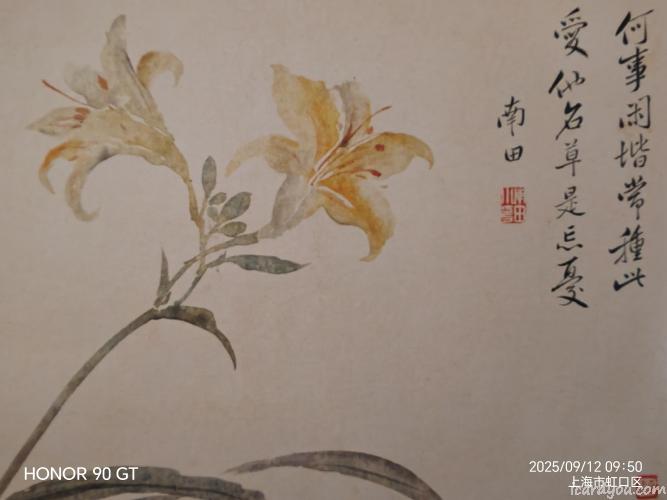 何事闲堦常種此
愛他名草是忘憂
南田
HONOR 90 GT
2025/09/12 09:50
上海市虹口区
icarayou.com